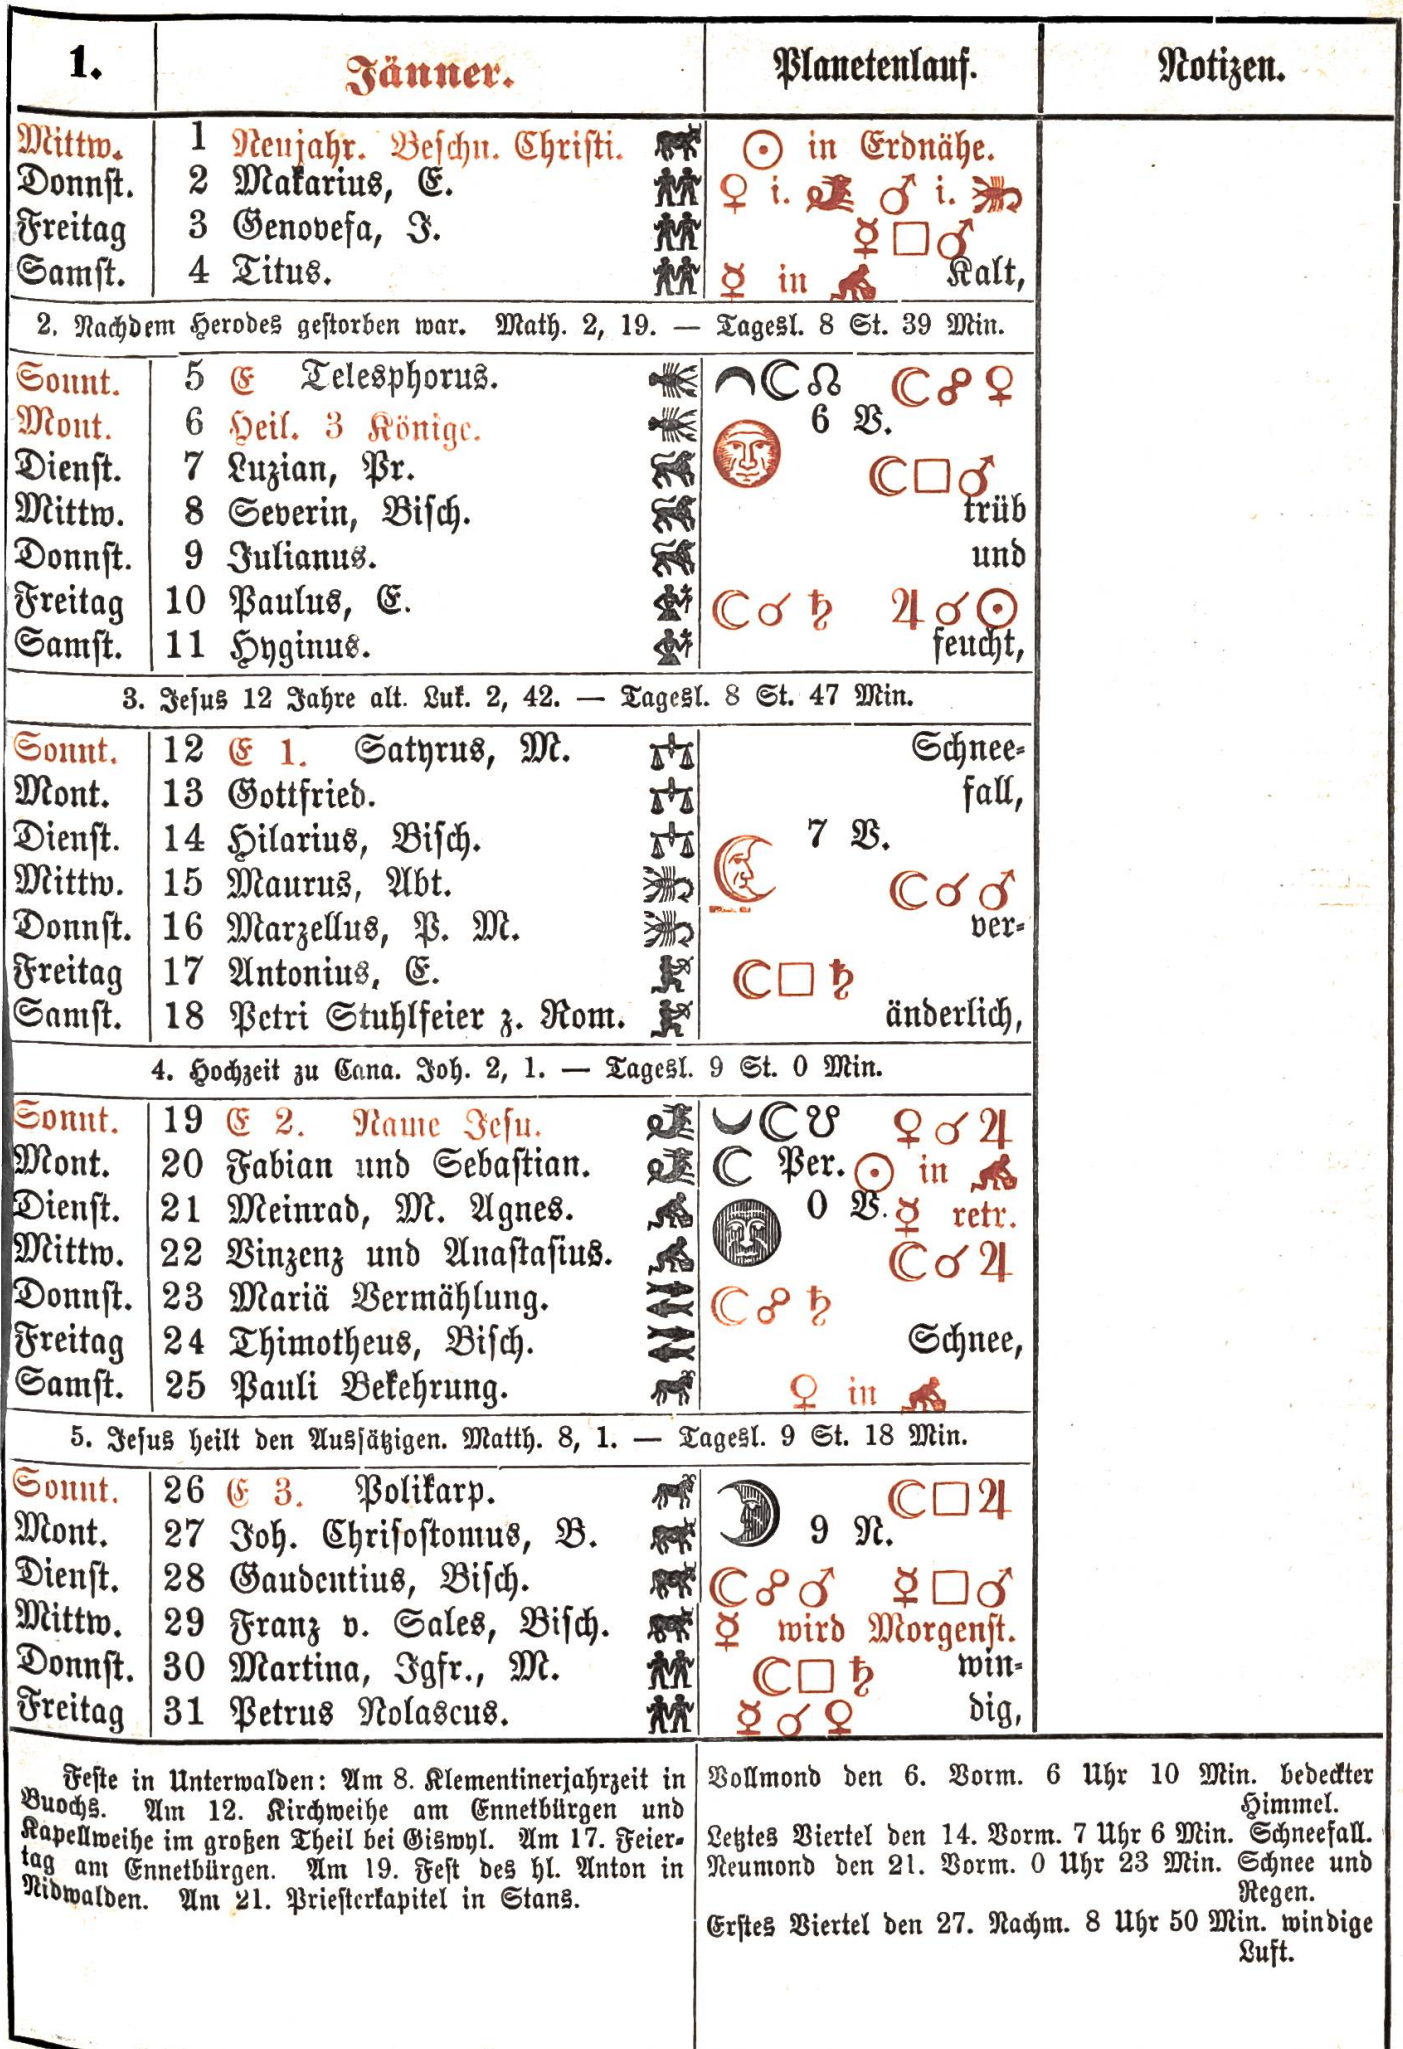 1. Jänner. Planetenlauf. Notizen.
Mittw. 1 Neujahr. Beschn. Christi. ☉ in Erdnähe.
Donnst. 2 Makarius, E. ♀ i. ♑ ♂ i. ♏
Freitag 3 Genovefa, J. ☿□♂
Samst. 4 Titus. ☿ in ♒ Kalt,
2. Nachdem Herodes gestorben war. Math. 2, 19. — Tagesl. 8 St. 39 Min.
Sonnt. 5 E Telesphorus. ☾☊ ☾☍♀
Mont. 6 Heil. 3 Könige. 6 V.
Dienst. 7 Luzian, Pr. ☾□♂
Mittw. 8 Severin, Bisch. trüb
Donnst. 9 Julianus. und
Freitag 10 Paulus, E. ☾☌♄ ♃☌☉
Samst. 11 Hyginus. feucht,
3. Jesus 12 Jahre alt. Luk. 2, 42. — Tagesl. 8 St. 47 Min.
Sonnt. 12 E 1. Satyrus, M. Schnee-
Mont. 13 Gottfried. fall,
Dienst. 14 Hilarius, Bisch. 7 V.
Mittw. 15 Maurus, Abt. ☾☌♂
Donnst. 16 Marzellus, P. M. ver-
Freitag 17 Antonius, E. ☾□♄
Samst. 18 Petri Stuhlfeier z. Rom. änderlich,
4. Hochzeit zu Cana. Joh. 2, 1. — Tagesl. 9 St. 0 Min.
Sonnt. 19 E 2. Name Jesu. ☾☋ ♀☌♃
Mont. 20 Fabian und Sebastian. ☾ Per. ☉ in ♒
Dienst. 21 Meinrad, M. Agnes. 0 V. ☿ retr.
Mittw. 22 Vinzenz und Anastasius. ☾☌♃
Donnst. 23 Mariä Vermählung. ☾☍♄
Freitag 24 Thimotheus, Bisch. Schnee,
Samst. 25 Pauli Bekehrung. ♀ in ♒
5. Jesus heilt den Aussätzigen. Matth. 8, 1. — Tagesl. 9 St. 18 Min.
Sonnt. 26 E 3. Polikarp. ☾□♃
Mont. 27 Joh. Chrisostomus, B. 9 N.
Dienst. 28 Gaudentius, Bisch. ☾☍♂ ☿□♂
Mittw. 29 Franz v. Sales, Bisch. ☿ wird Morgenst.
Donnst. 30 Martina, Jgfr., M. ☾□♄ win-
Freitag 31 Petrus Nolascus. ☿☌♀ dig,
Feste in Unterwalden: Am 8. Klementinerjahrzeit in
Buochs. Am 12. Kirchweihe am Ennetbürgen und
Kapellweihe im großen Theil bei Giswyl. Am 17. Feier-
tag am Ennetbürgen. Am 19. Fest des hl. Anton in
Nidwalden. Am 21. Priesterkapitel in Stans.
Vollmond den 6. Vorm. 6 Uhr 10 Min. bedeckter
Himmel.
Letztes Viertel den 14. Vorm. 7 Uhr 6 Min. Schneefall.
Neumond den 21. Vorm. 0 Uhr 23 Min. Schnee und
Regen.
Erstes Viertel den 27. Nachm. 8 Uhr 50 Min. windige
Luft.